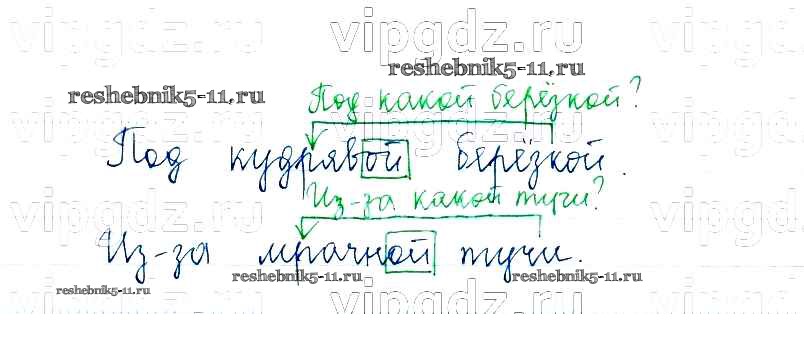 vipgdz.ru vipgdz.ru vipgd
reshebnik5-11.ru
reshebnik5-11.ru
Под какой берёзкой?
Под кудрявой берёзкой.
Из-за какой тучи?
Из-за мрачной тучи.
reshebnik5-11.ru reshebnik5-11.ru
reshebnik5-11.ru
vipgdz.ru vipgdz.ru vipgd